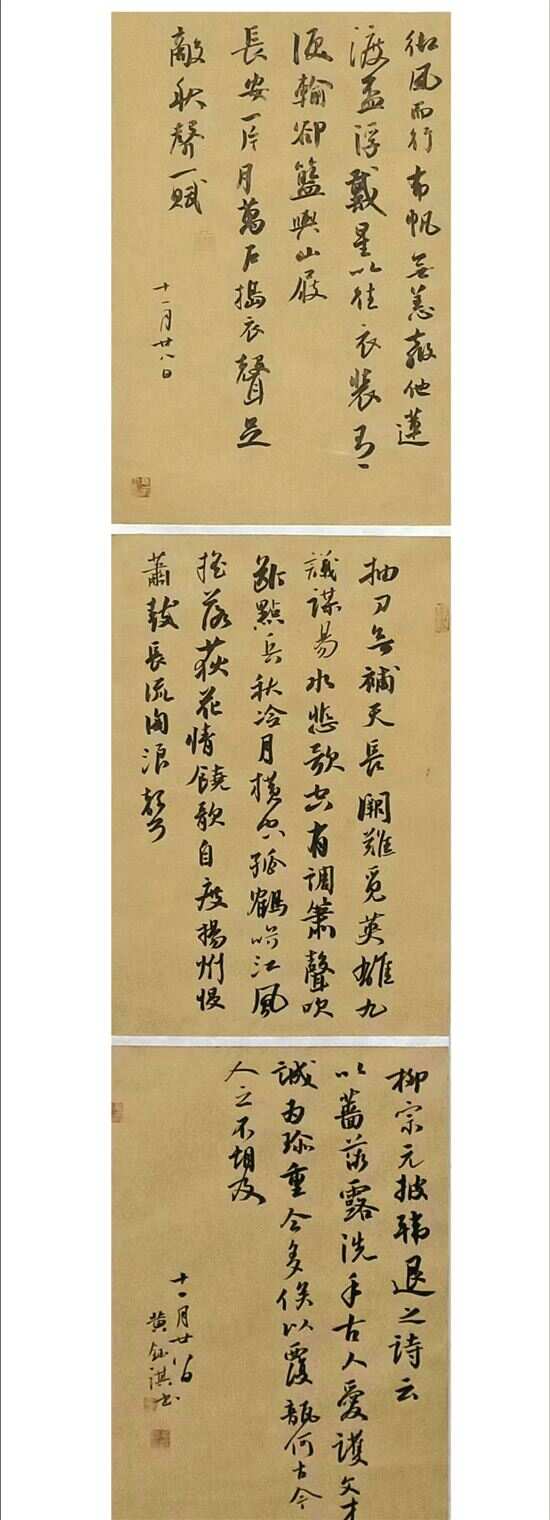 御風而行布帆無恙敢他蓮
渡盃浮戴星以往衣裝有一
返輪卻籃輿山屐
長安一片月萬戶搗衣聲足
敵秋聲一賦
十一月廿八日
抽刀無補天長闕難覓英雄九
議謀易水悲歌空有調簫聲吹
斷點兵秋冷月橫空孤鶴唳江風
搖落荻花情饒歌自度揚州慢
蕭鼓長流向浪聲
柳宗元披韓退之詩云
以薔薇露洗手古人愛護文才
誠為珍重今多俟以覆瓿何古今
人之不相及
十一月廿八日
黃鈺淇書